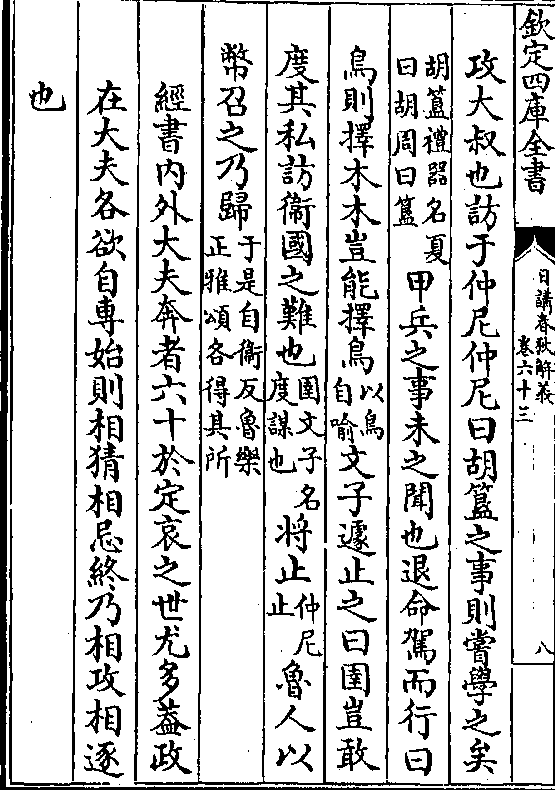 欽定四庫全書
日講春秋解義
卷六十三
八
攻大叔也訪于仲尼仲尼曰胡簋之事則嘗學之矣
胡簋禮器名夏
曰胡周曰簋
甲兵之事未之聞也退命駕而行曰
鳥則擇木木豈能擇鳥
以鳥
自喻
文子遽止之曰圉豈敢
度其私訪衞國之難也
圉文子名
度謀也
將止
仲尼
止
魯人以
幣召之乃歸
于是自衞反魯樂
正雅頌各得其所
經書內外大夫奔者六十於定哀之世尤多蓋政
在大夫各欲自專始則相猜相忌終乃相攻相逐
也